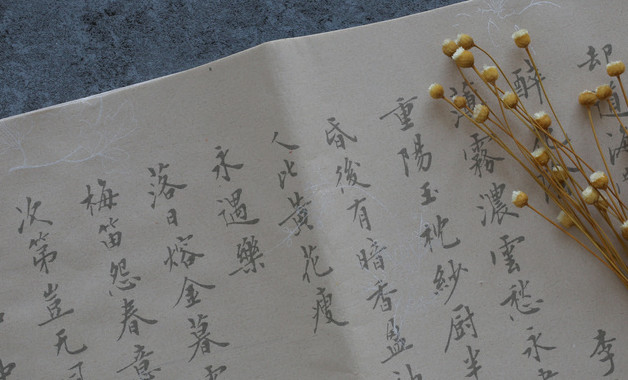 却道海
醉花
李
薄霧濃雲愁永
重陽玉枕紗厨半
昏後有暗香盈
人比黃花瘦
永遇樂
落日熔金暮
梅笛怨春意
次第豈无